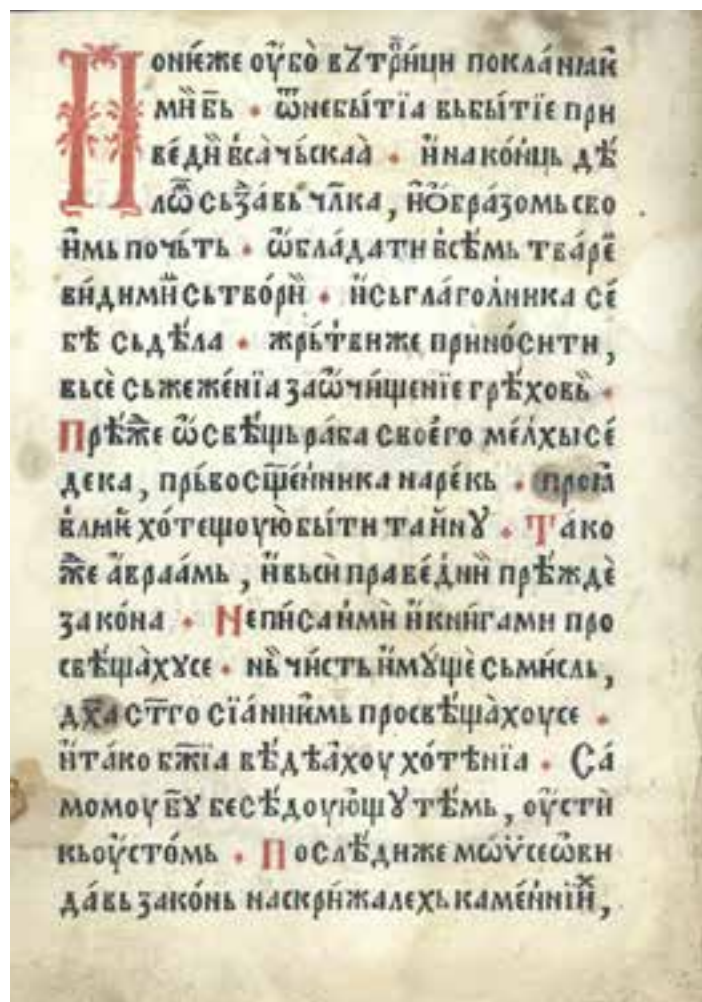 Понѥ́же оу҆́бѡ̀ вꙁтрⷪ҇и́ци покла́нꙗѥ
мы́и б҃ь · ѿнебы́тїа вьбы́тїе при
ве́ды вса̀чьскаа̀ · и҆ на ко́нць дѣ́
лѡⷨ сьз̾да́вь чл҃ка, и҆ѻ҆бра́зомь сво
и҆́мь почь́ть · ѡ҆бла́дати всѣ́мь тва́ре
ви́димы́и сьтво́ры · и҆сьглаго́лника се́
бѣ сьдѣ́ла · жрь́твиже прино́сити,
вьсѐ сьжеже́нїа заѡ҆чи́щенїе грѣ́ховь ·
Прѣ́жⷣе ѡ҆свѣ́щь ра́ба своѐго ме́лхысе́
дека, прь́восщ҃е́нника наре́кь · проꙗ́
влꙗѥ хо́тещоую̀ бы́ти та́инꙋ · Та́ко
жⷣе а҆враа́мь, и҆вьсы̀ праве́дны́и прѣ́ждѐ
зако́на · Непи́саи҆мы̀ и҆кни́гами про
свѣ́ща̀хꙋсе · нь̀ чи́сть и҆мꙋ́щѐ сьми́сль,
дх҃а ст҃го сїа́нни́мь просвѣ́ща̀хоусе ·
и҆та́ко бж҃їа вѣ́дѣа̀хоу хо́тѣнїа · Са́
момоу б҃ꙋ бесѣ́доую̀щꙋ тѣ́мь, оу҆́сты̀
кьоу҆́сто́мь · Послѣ́дниже мѡѷсеѡ҆ви
да́вь зако́нь наскри́жалехь каме́нныиⷯ,